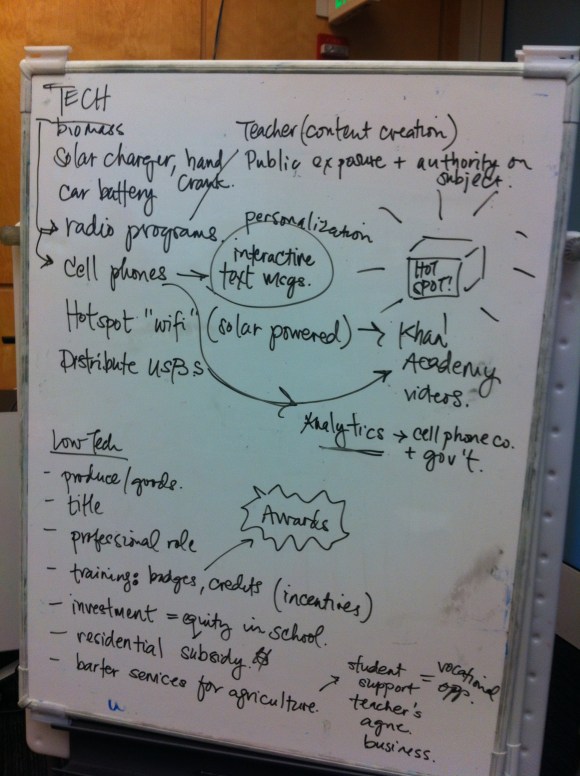 TECH
biomass
Teacher (content creation)
Solar charger, hand crank.
Public exposure + authority on subject.
car battery
radio programs.
personalization
cell phones → interactive text msgs.
HOT SPOT!
Hotspot "wifi" (solar powered) → Khan Academy videos.
Distribute USBs
Analytics → cell phone co. + gov't.
Low Tech
- produce/goods.
- title
- professional role
Awards
- training: badges, credits (incentives)
- investment = equity in school.
- residential subsidy.
- barter services for agriculture.
student support teacher's agric. business. = vocational opp.